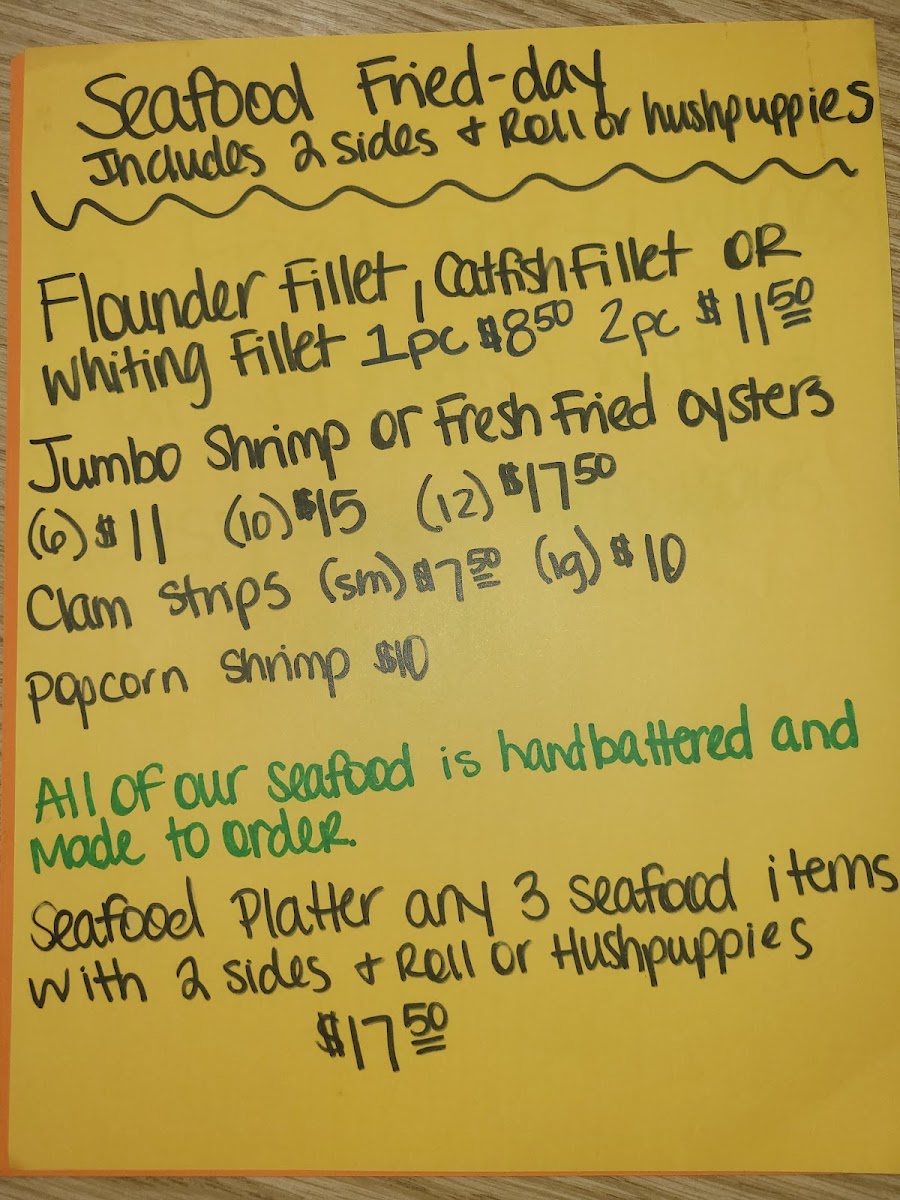 Seafood Fried-day
Includes 2 sides + Roll or hushpuppies
Flounder Fillet, Catfish Fillet OR
Whiting Fillet 1pc $8.50 2pc $11.50
Jumbo Shrimp or Fresh Fried oysters
(6) $11 (10) $15 (12) $17.50
Clam Strips (sm) $7.50 (lg) $10
Popcorn Shrimp $10
All of our seafood is handbattered and
Made to order.
Seafood Platter any 3 seafood items
With 2 sides + Roll or Hushpuppies
$17.50